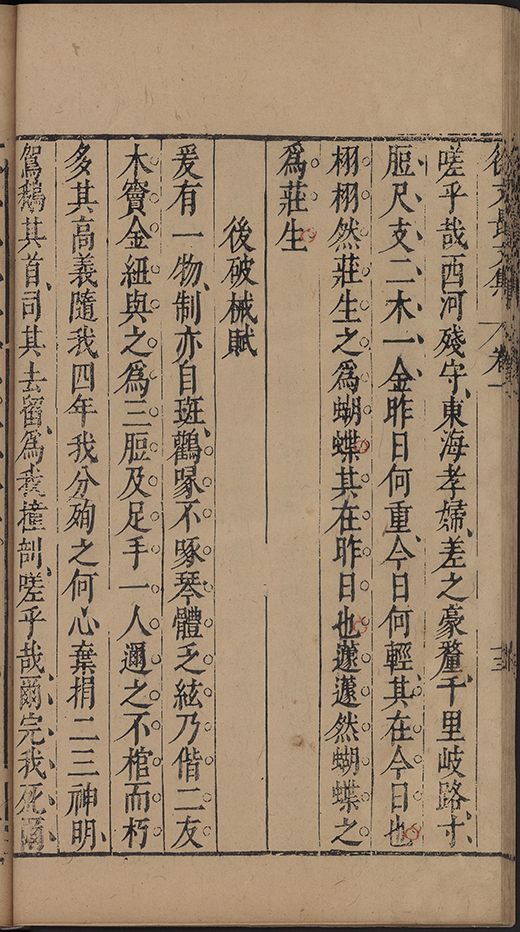 徐文長文集 卷一 十三
嗟乎哉西河殘守東海孝婦差之豪釐千里岐路寸
脰尺支二木一金昨日何重今日何輕其在今日也
栩栩然莊生之為蝴蝶其在昨日也蘧蘧然蝴蝶之
為莊生
後破械賦
爰有一物制亦自斑鸛喙不啄琴體乏絃乃偕二友
木寶金紐與之為三脰及足手一人邇之不棺而朽
多其高義隨我四年我分殉之何心棄捐二三神明
鴛鵝其首司其去留為我撞剖嗟乎哉爾完我死